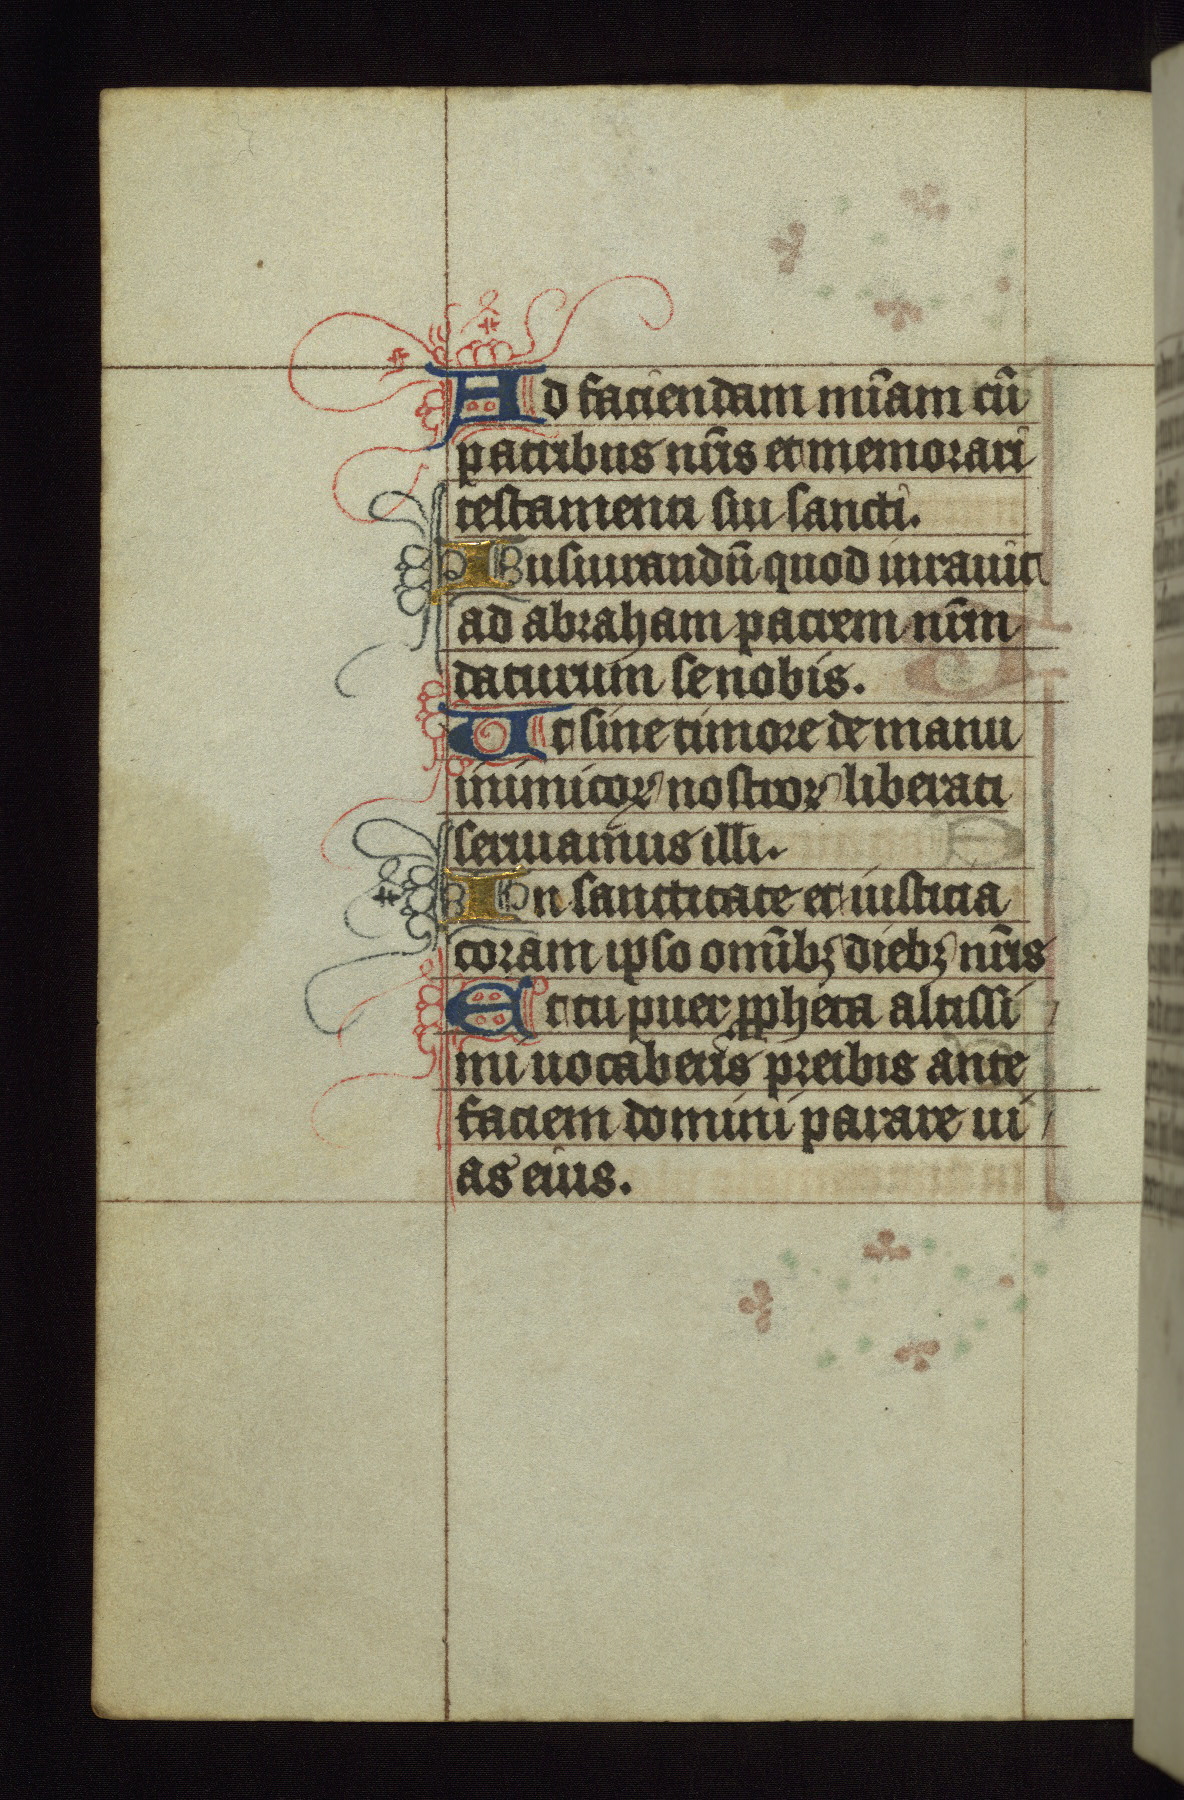 Ad faciendam mĩam cũ
patribus nr̃is et memorari
testamenti sui sancti.
Iusiurandũ quod iurauit
ad abraham patrem nr̃m
daturum se nobis.
Ut sine timore de manu
inimicoꝝ nostroꝝ liberati
seruiamus illi.
In sanctitate et iusticia
coram ipso om̃ibꝫ diebꝫ nr̃is
Et tu puer ꝓpheta altissi
mi uocaberis preibis ante
faciem domini parare ui
as eius.